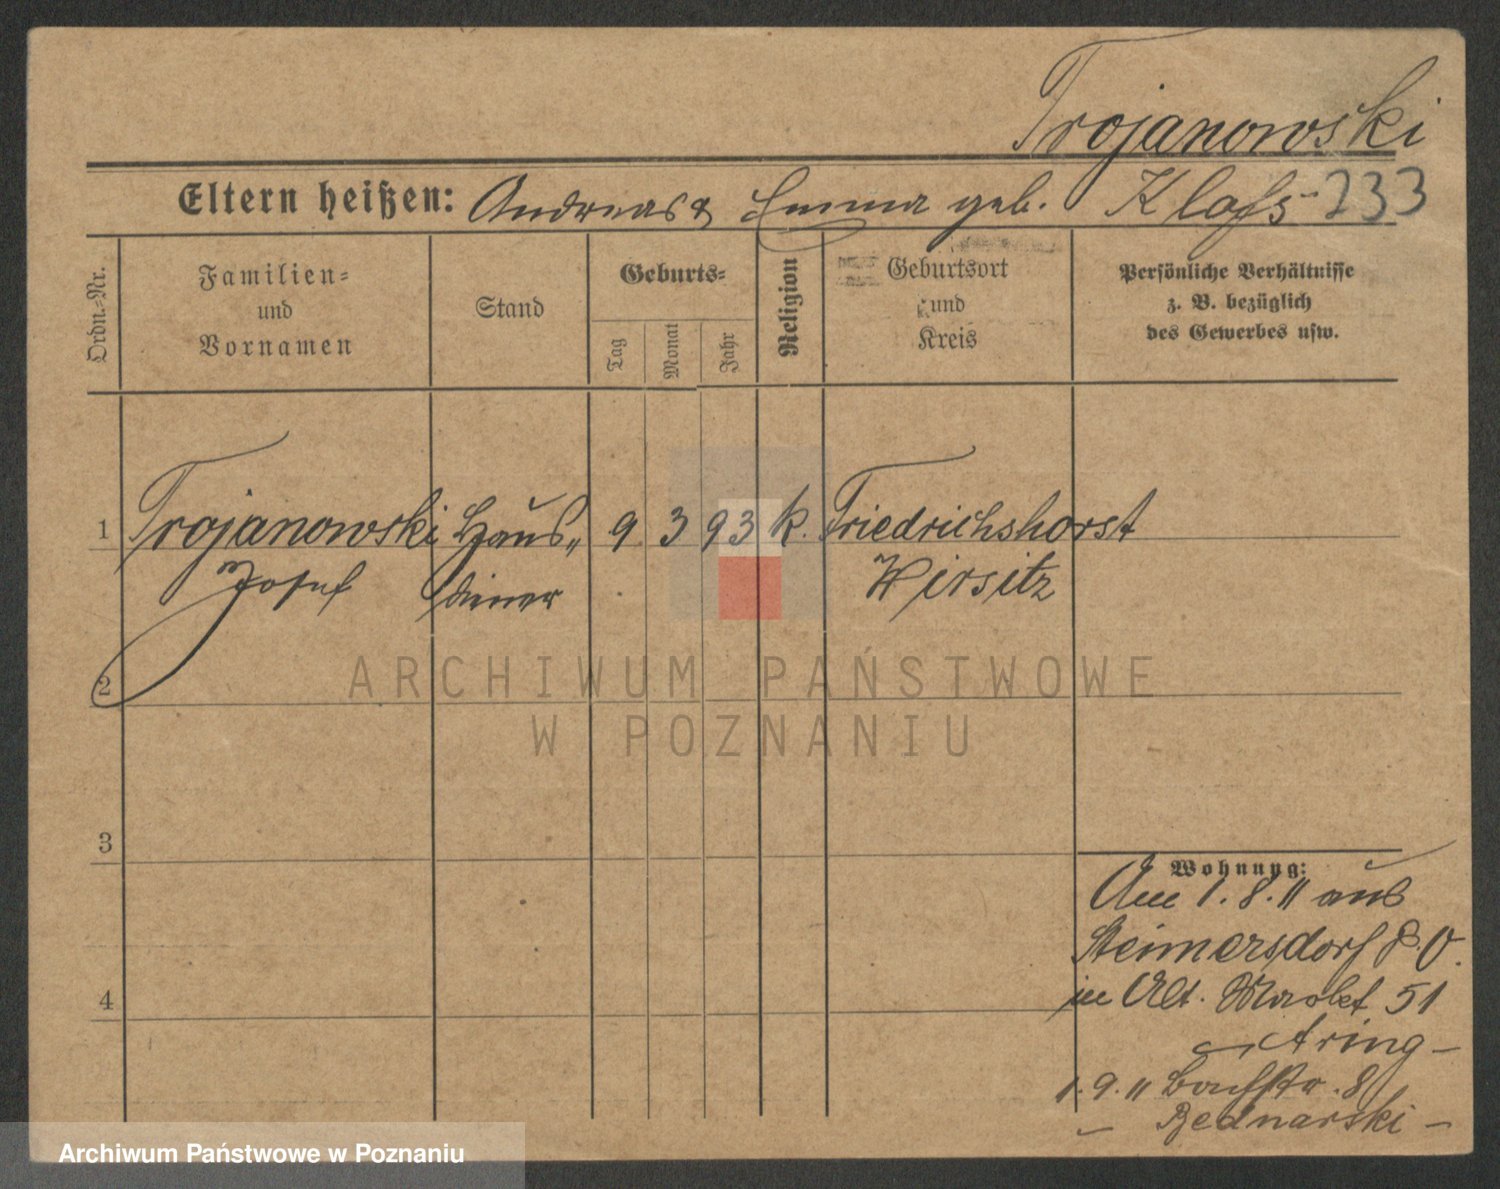 Trojanowski
Eltern heißen: Andreas & Emma geb. Klafs 233
Ordn.-Nr.
Familien- und Vornamen
Stand
Geburts-
Tag
Monat
Jahr
Religion
Geburtsort und Kreis
Persönliche Verhältnisse
z. B. bezüglich
des Gewerbes usw.
1 Trojanowski Haus- 9 3 93 k. Friedrichshorst
Josef diener Wirsitz
2
3
4
Wohnung:
Am 1.8.11 aus
Steimersdorf P.O.
in Alt. Markt 51
Aring -
1.9.11 Bachstr. 8
- Bednarski -
ARCHIWUM PAŃSTWOWE
W POZNANIU
Archiwum Państwowe w Poznaniu